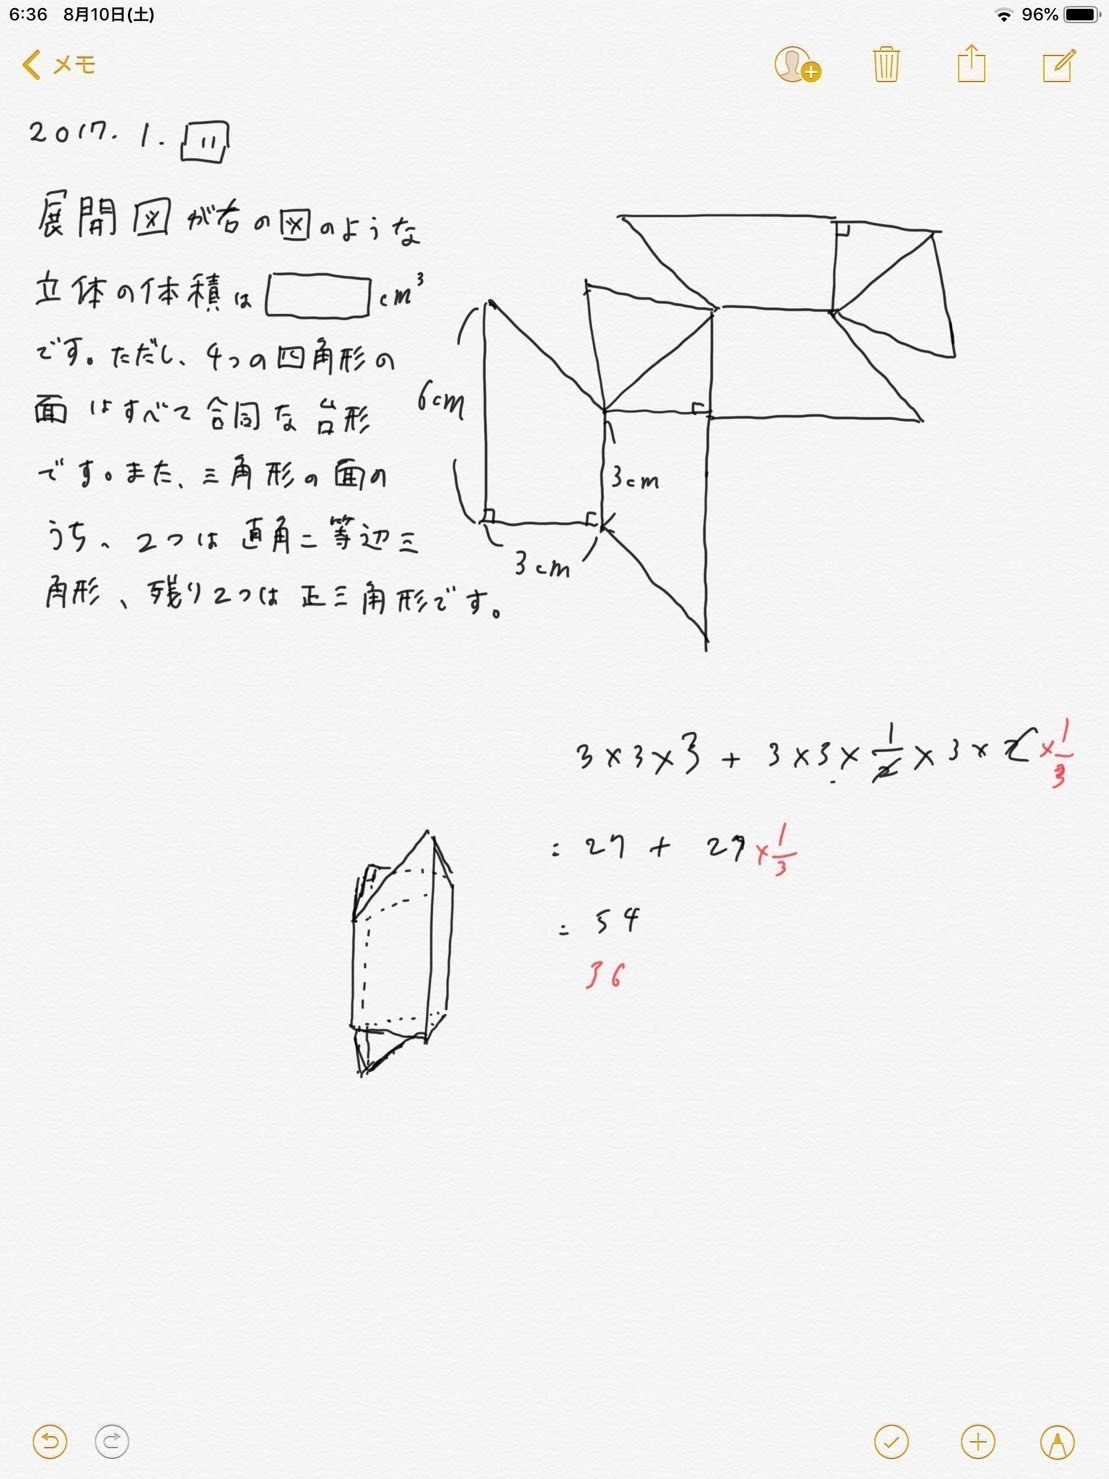 6:36 8月10日(土) 96%
メモ
2017. 1. 11
展開図が右の図のような
立体の体積は cm³
です。ただし、4つの四角形の
面はすべて合同な台形
です。また、三角形の面の
うち、2つは直角二等辺三
角形、残り2つは正三角形です。
6cm
3cm
3cm
3×3×3 + 3×3×1/2×3×2×1/3
= 27 + 27×1/3
= 54
36